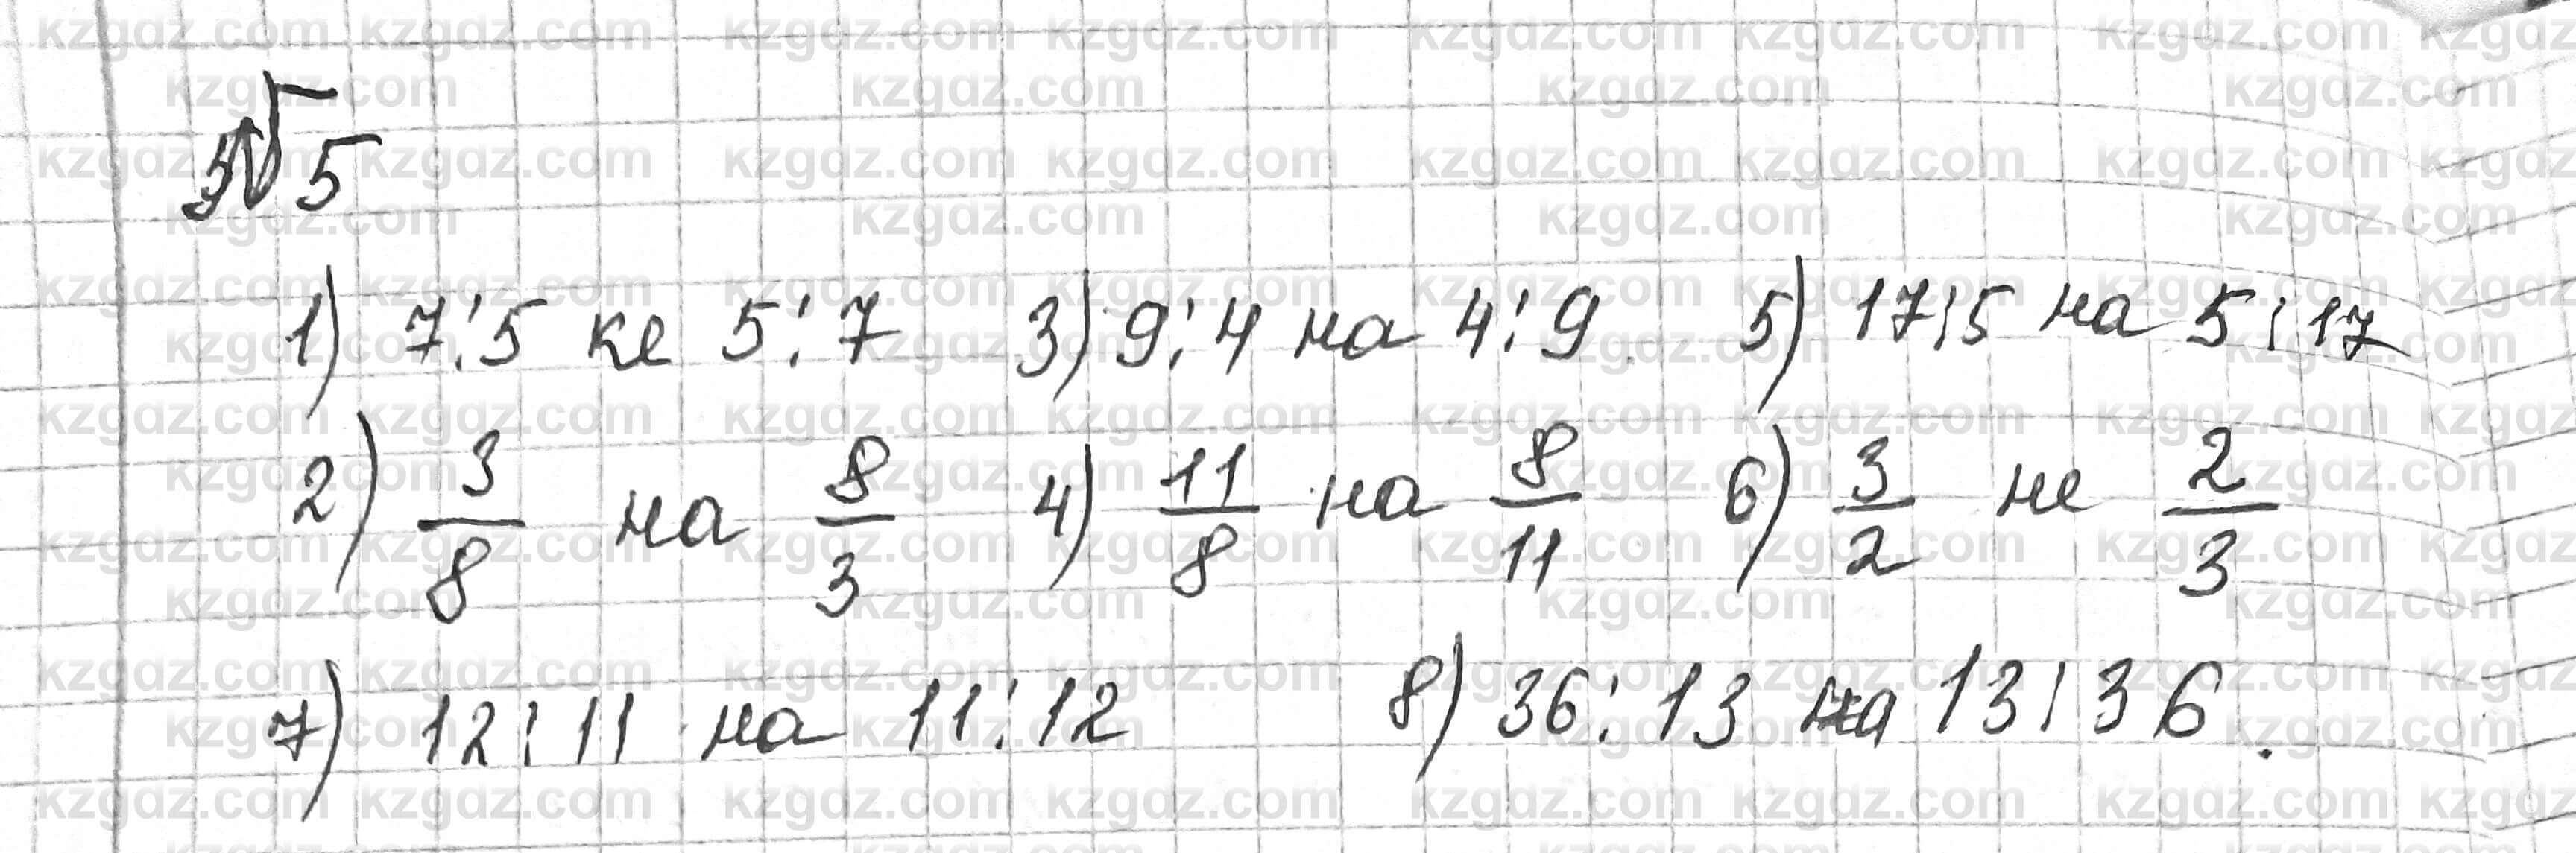 №5
1) 7:5 ке 5:7 3) 9:4 на 4:9 5) 17:5 на 5:17
2) 3/8 на 8/3 4) 11/8 на 8/11 6) 3/2 не 2/3
7) 12:11 на 11:12 8) 36:13 на 13:36.
kzgdz.com